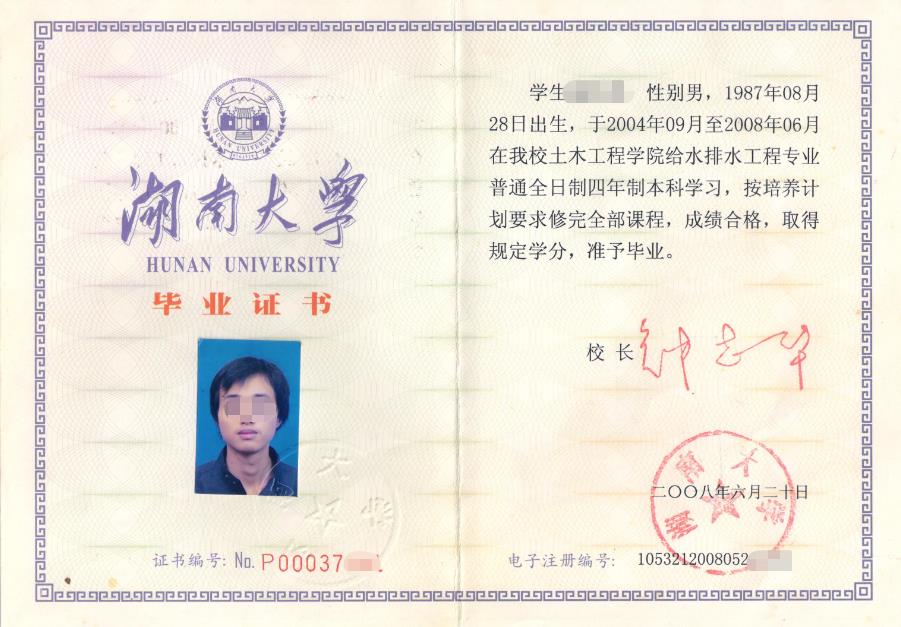 湖南大学
HUNAN UNIVERSITY
湖南大学
HUNAN UNIVERSITY
毕业证书
证书编号: No. P00037
学生 性别男，1987年08月
28日出生，于2004年09月至2008年06月
在我校土木工程学院给水排水工程专业
普通全日制四年制本科学习，按培养计
划要求修完全部课程，成绩合格，取得
规定学分，准予毕业。
校 长 钟志华
湖南大学
二〇〇八年六月二十日
电子注册编号: 1053212008052